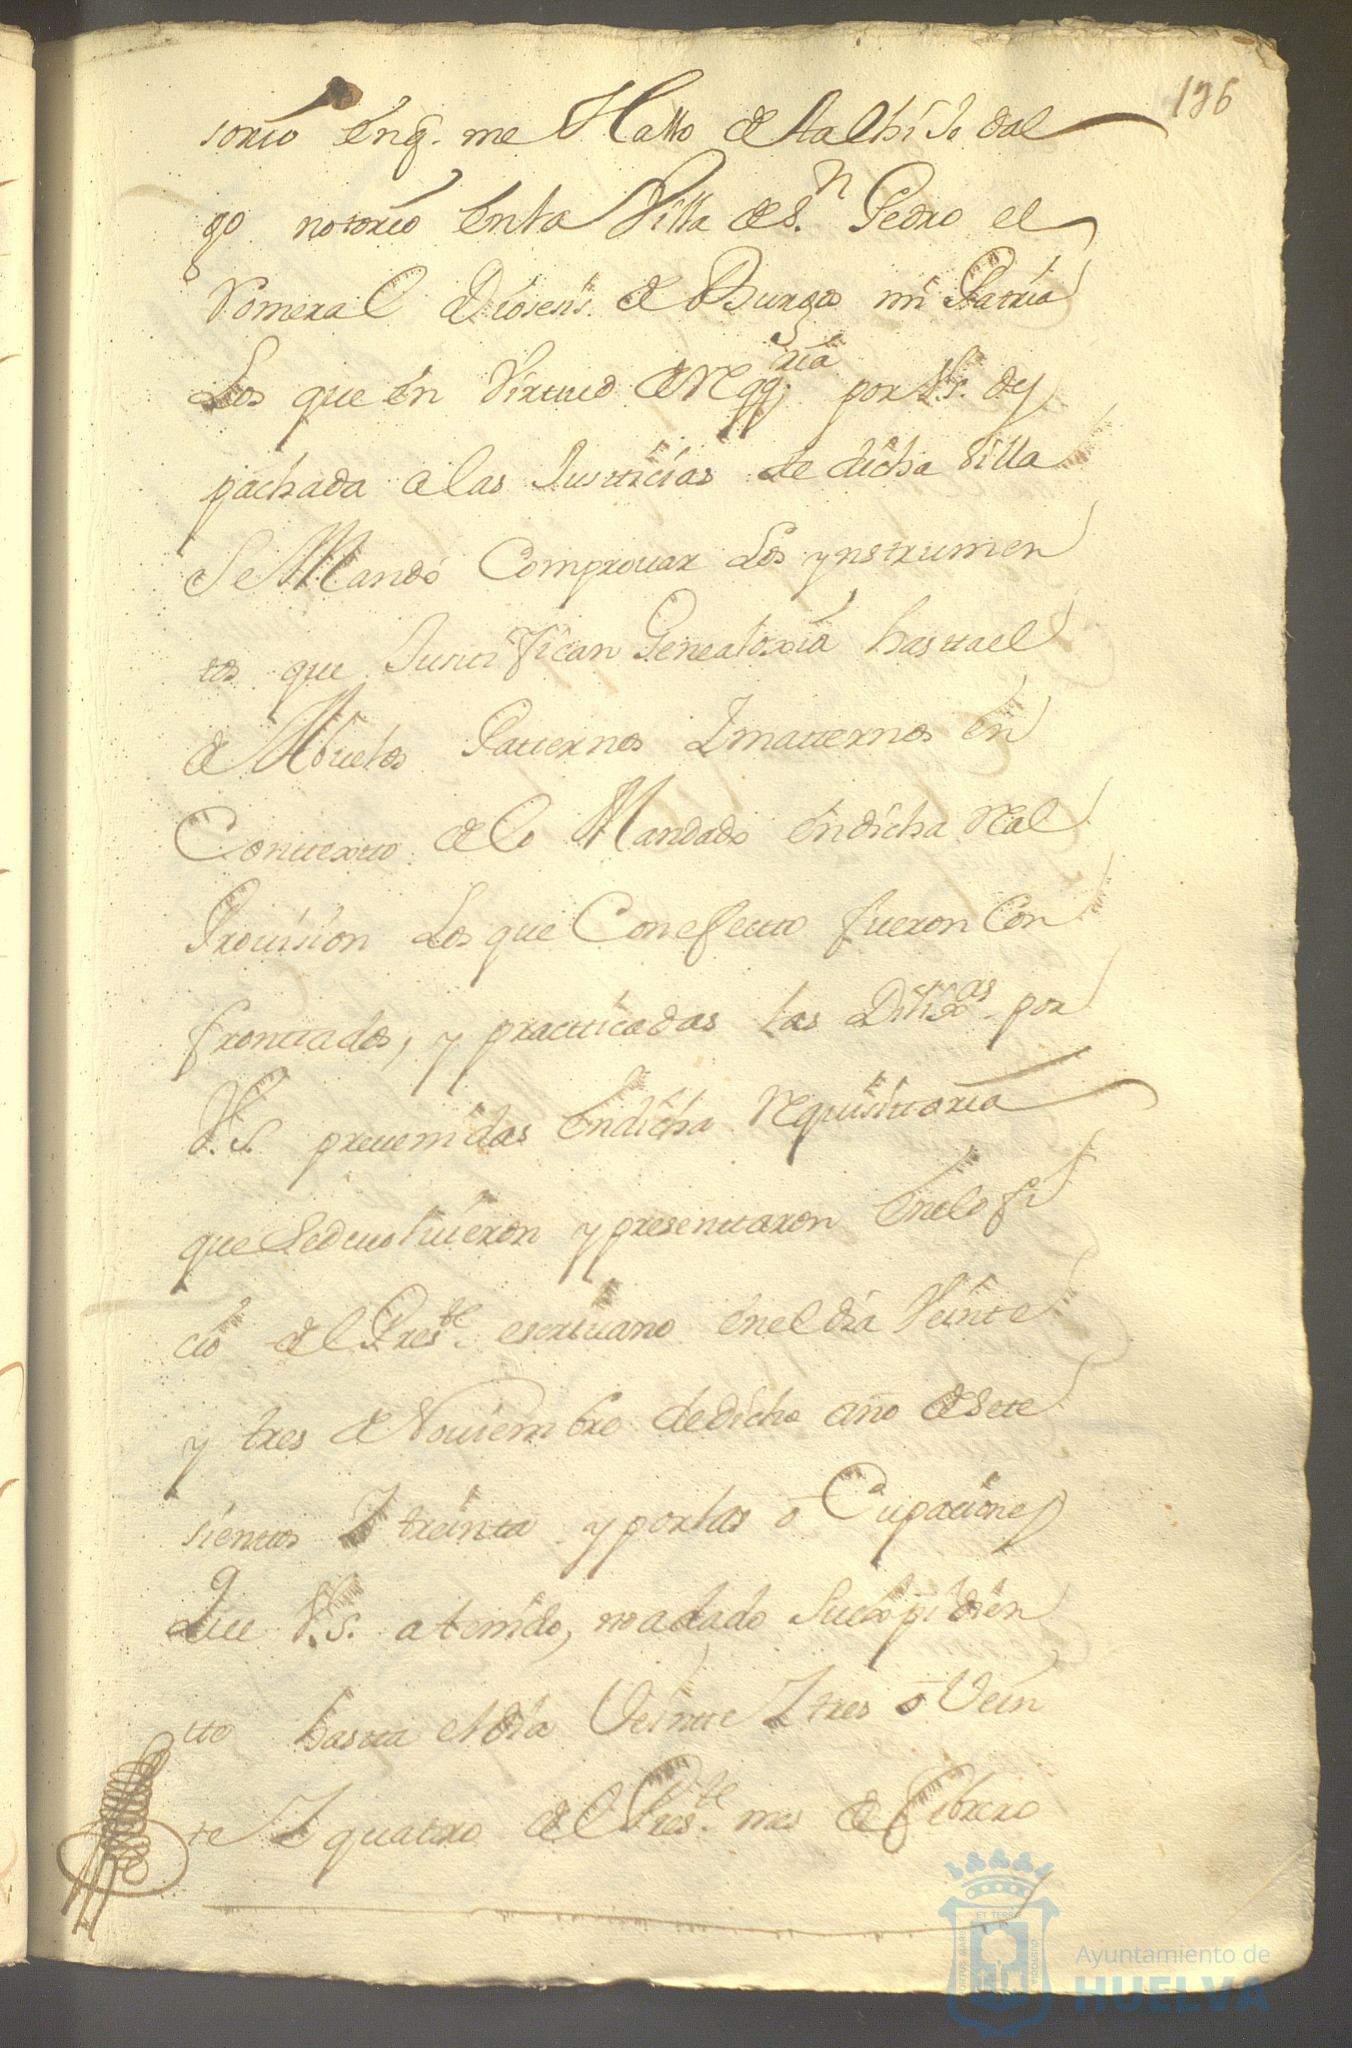 196
sorio enq. me Hallo de tal hiJo dal
go notorio en la Villa de S.n Pedro el
Romeral Diosesis. de Burgos mi Patria
Los que en Virtud de Rqq.ria por V.s. des
pachada a las Justticias de dicha Villa
Se Mandó Comprouar Los ynstrumen
tos que Justtifican Genealoxia hastael
de Abuelos Patternos Imatternos en
Conttextto de lo Mandado en dicha Real
Prouision Los que Con efectto fueron Con
fronttados, y practticadas las Dilix.as por
V.S. preuenidas En dicha Requisittoria
que se deuoluieron y presenttaron Enelofi
cio del Press.te escriuano Enel dia Veinte
y tres de Nouiembre de dicho año desete
sienttos I treinta y por las oCupaciones
Que V.s. a tenido, no a dado Su expidien
tte hastta el dia Veintte I tres o Vein
te I quatro del Press.te mes de Febrero
Ayuntamiento de
HUELVA